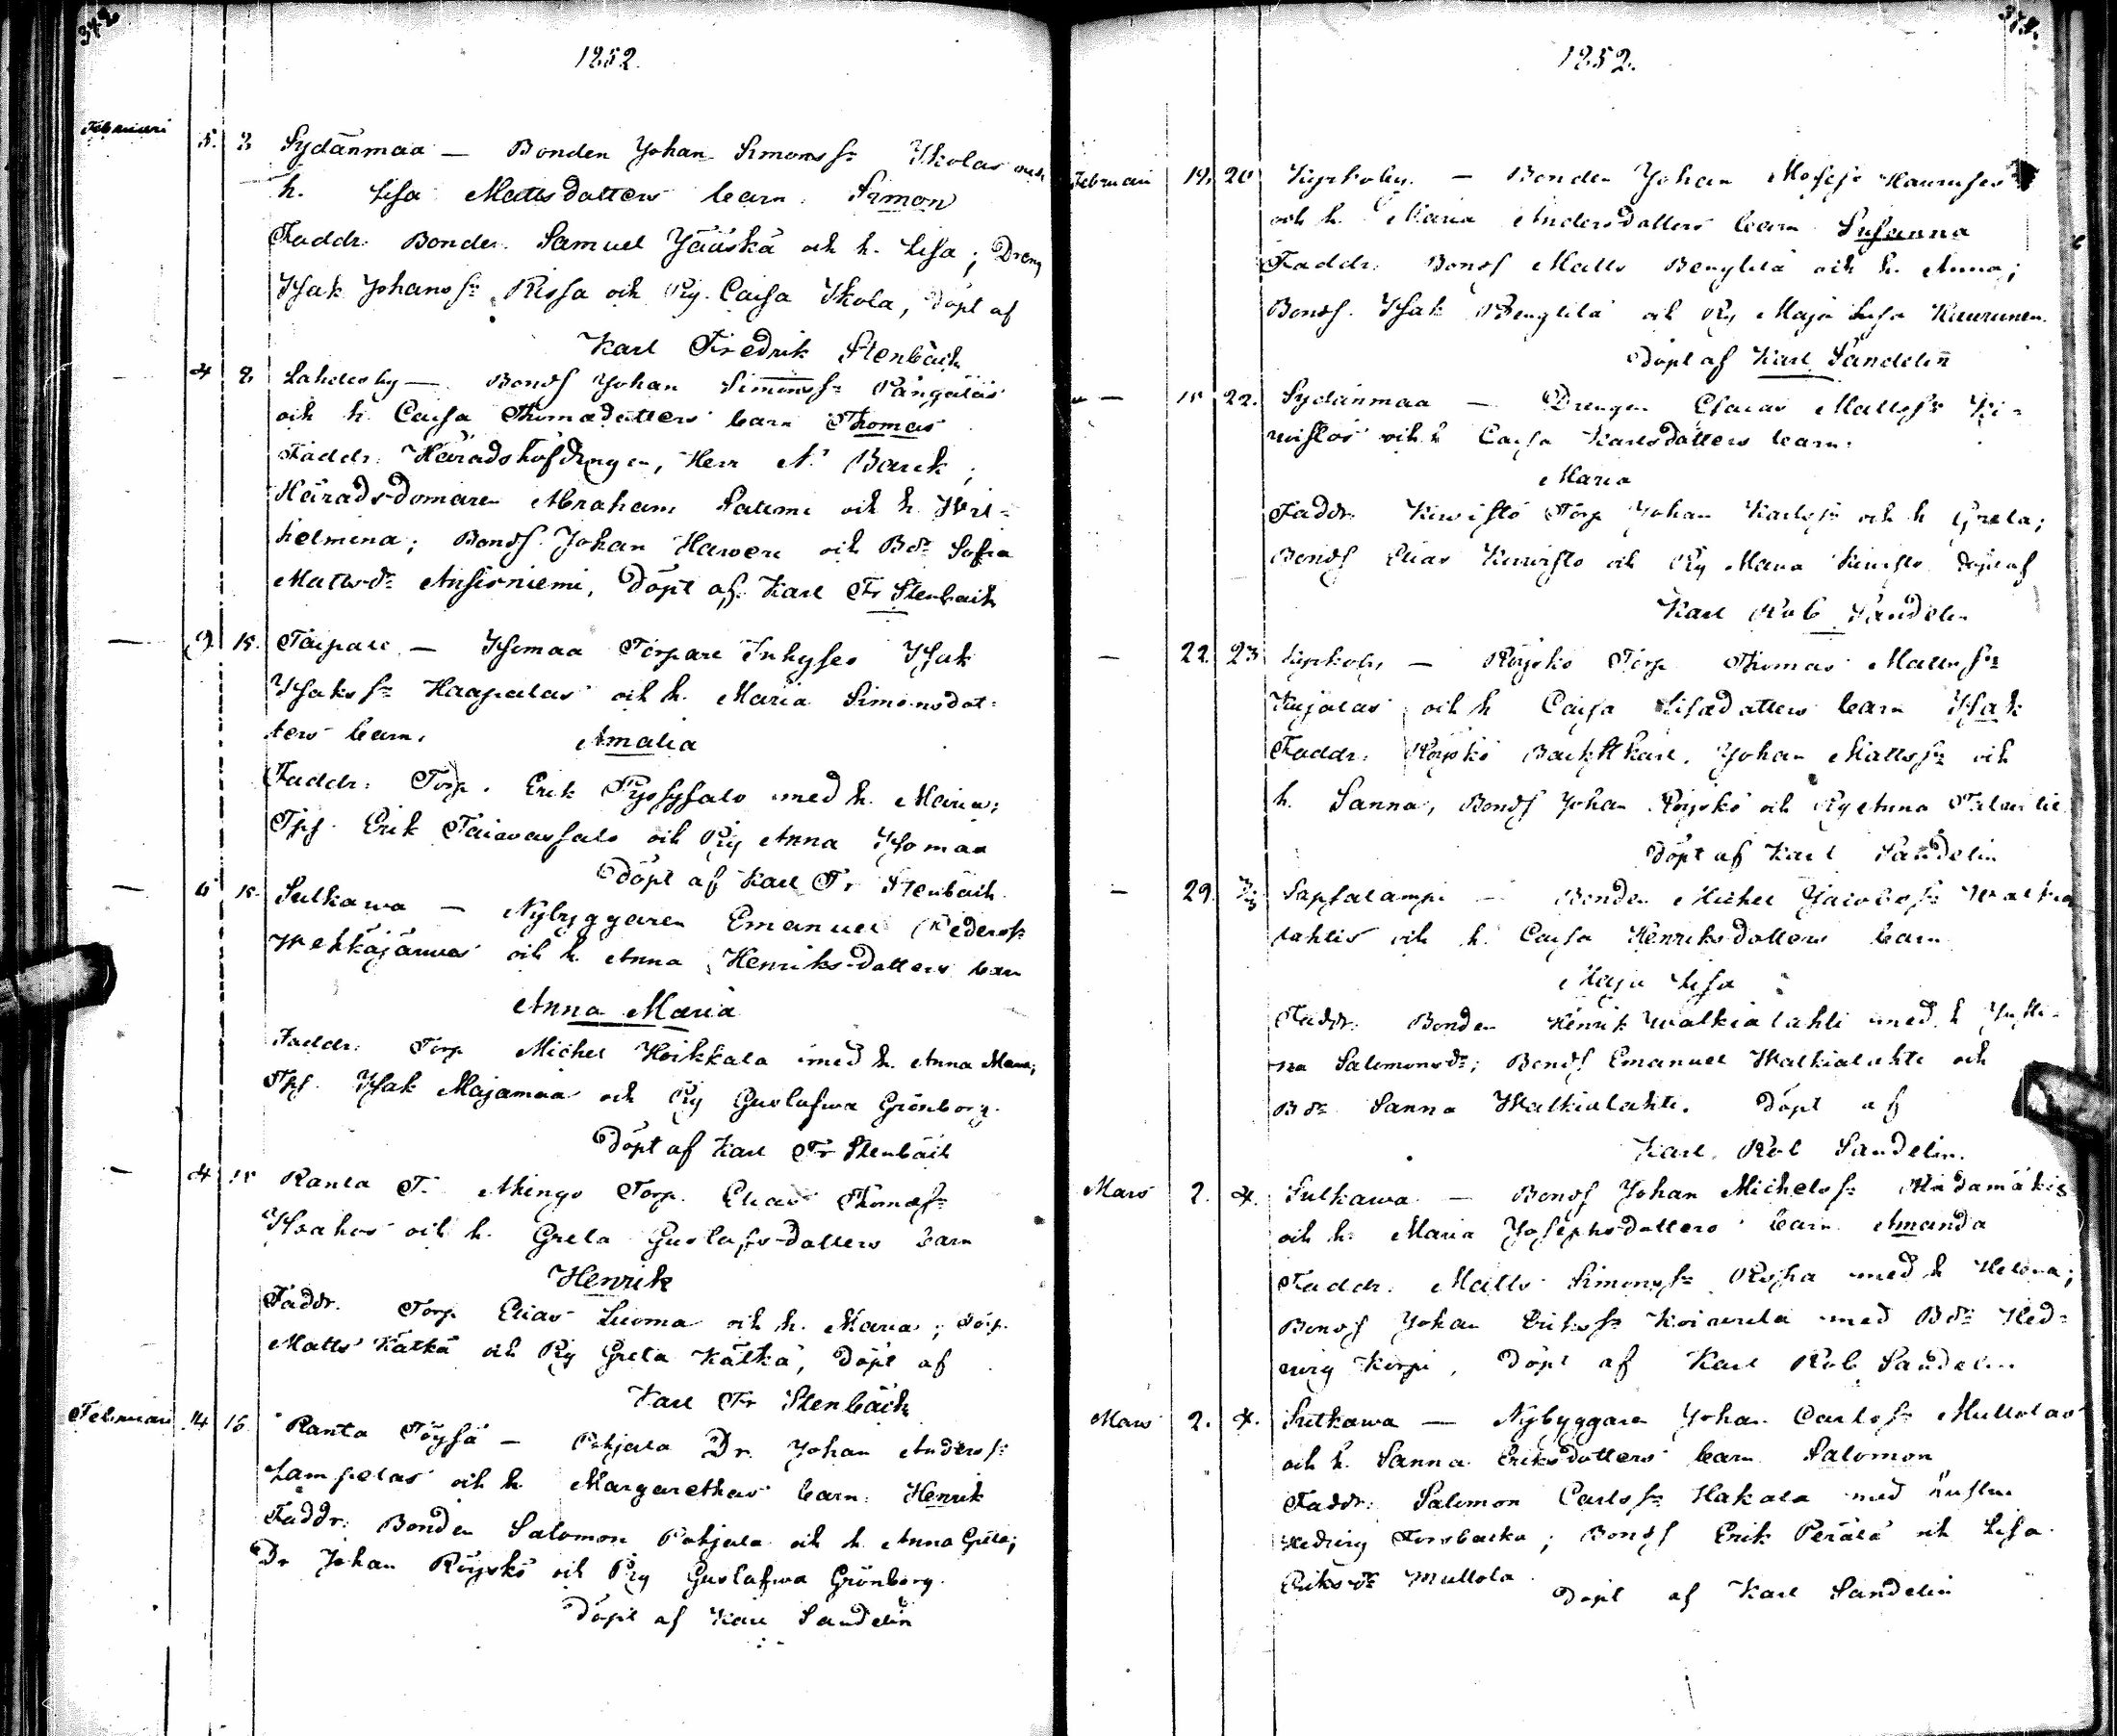 342
1852.
Februari 5. 8 Sydänmaa — Bonden Johan Simonss: Ikolas och
h. Lisa Mattsdotters barn Simon
Faddr: Bonden Samuel Jääskä och h. Lisa; Dreng
Isak Johanss: Rissa och Pig. Caisa Ikola, Döpt af
Karl Fredrik Stenbäck
4 8 Lahdesby — Bonds Johan Simonss: Pångäläs
och h. Caisa Thomædotters barn Thomas
Faddr: Häradshöfdingen, Herr N. Barck;
Härads-domaren Abraham Salumi och h. Wil-
helmina; Bonds. Johan Haveri och Bdr Sofia
Mattsdr Ansioniemi, Döpt af Karl Fr Stenbäck
— 9 15. Taipale — Isomaa Torpare Inhyses Isak
Isakss: Haapalas och h. Maria Simonsdot-
ters barn. Amalia
Faddr: Torp. Erik Pyssysalo med h. Maria;
Tps. Erik Taiavassalo och Pig Anna Isomaa
Döpt af Karl Fr Stenbäck
— 6 15. Sulkawa — Nybyggaren Emanuel Pederss:
Wehkäjärwes och h. Anna Henriks-dotters barn
Anna Maria
Faddr: Torp Michel Hoikkala med h. Anna Maria;
Tps. Isak Majamaa och Pig Gustafwa Grönborg.
Döpt af Karl Fr Stenbäck
— 4 15 Ranta T. Mengo Torp. Elias Thomæs:
Ahos och h. Greta Gustafs-dotters barn
Henrik
Faddr. Torp Elias Luoma och h. Maria; Torp.
Matts Kätkä och Pig Greta Kätkä, Döpt af
Karl Fr Stenbäck
Februari 14 16 Ranta Töysä — Pohjala Dr. Johan Anderss:
Lampelas och h. Margarethas barn: Henrik
Faddr: Bonden Salomon Pohjala och h. Anna Greta;
Dr Johan Röyskö och Pig Gustafwa Grönborg.
Döpt af Karl Sandelin
1852.
Februari 19. 20 Kyrkoby. — Bonden Johan Mosess Kaurases
och h. Maria Andersdotters barn Susanna
Faddr: Bonds Matts Bengtilä och h. Anna;
Bonds. Isak Bengtilä och Pig Maja Lisa Kaurunen.
Döpt af Karl Sandelin
— 15 22. Sydänmaa — Drengen Esaias Mattss: Ki-
wistös och h Caisa Karlsdotters barn:
Maria
Faddr. Kiwistö Torp Johan Karlss: och h Greta;
Bonds Elias Kiwistö och Pig Maria Kiwistö Döpt af
Karl Rob Sandelin
— 22. 23 Kyrkoby — Röyskö Torp Thomas Mattss:
Kujalas och h Caisa Lisædotters barn Isak
Faddr: Röyskö Backstkarl. Johan Mattss: och
h. Sanna, Bonds Johan Röyskö och Pig Anna
Döpt af Karl Sandelin
— 29. Sapsalampi — Bonden Michel Jacobss: Walkia
lahtis och h. Caisa Henriks-dotters barn
Maja Lisa
Faddr. Bonden Henrik Walkialahti med h Justi-
na Salomonsdr; Bonds Emanuel Walkialahti och
Bdr Sanna Walkialahti. Döpt af
Karl. Rob Sandelin.
Mars 2. 4. Sulkawa — Bonds Johan Michelss: Madamäkis
och h. Maria Josephs-dotters barn Amanda
Faddr. Matts Simonss: Rossa med h Helena;
Bonds Johan Erikss: Koiwula med Bdr Hed-
wig Korpi, Döpt af Karl Rob Sandelin
Mars 2. 4. Sulkawa — Nybyggaren Johan Carlss: Mullolas
och h. Sanna Eriksdotters barn Salomon
Faddr: Salomon Carlss: Hakala med hustru
Hedwig Forsbacka; Bonds Erik Perälä och Lisa
Eriksdr Mullola. Döpt af Karl Sandelin